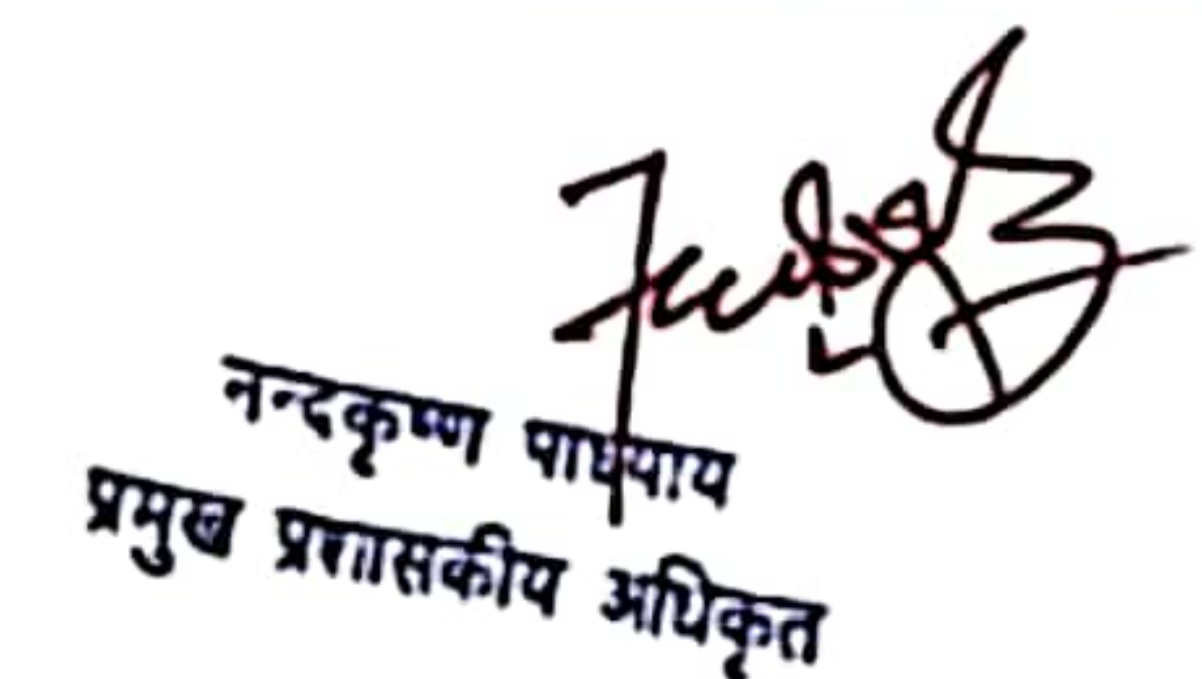 नन्दकृष्ण पाध्याय
प्रमुख प्रशासकीय अधिकृत